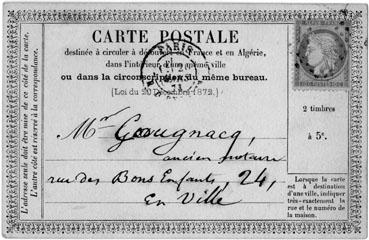 CARTE POSTALE
destinée à circuler à découvert en France et en Algérie,
dans l'intérieur d'une même ville
ou dans la circonscription du même bureau.
(Loi du 20 Décembre 1872.)
PARIS
2 timbres
à 5c.
Mr Gougnacq,
ancien notaire
rue des Bons Enfants, 24,
En Ville
Lorsque la carte
est à destination
d'une ville, indiquer
très-exactement la
rue et le numéro de
la maison.
L'adresse seule doit être mise de ce côté de la carte.
L'autre côté est réservé à la correspondance.